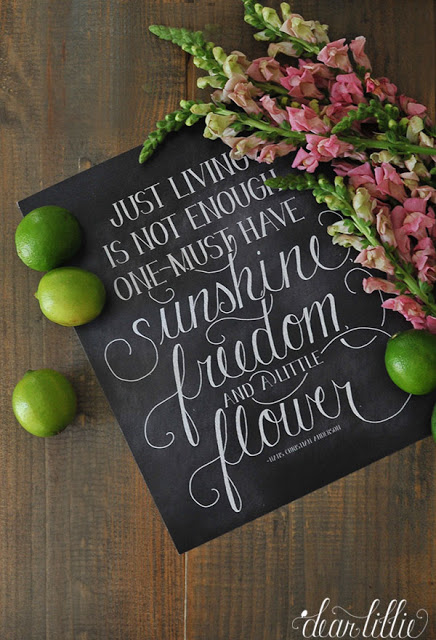 JUST LIVING
IS NOT ENOUGH
ONE MUST HAVE
sunshine
freedom,
AND A LITTLE
flower
-HANS CHRISTIAN ANDERSON
dear lillie